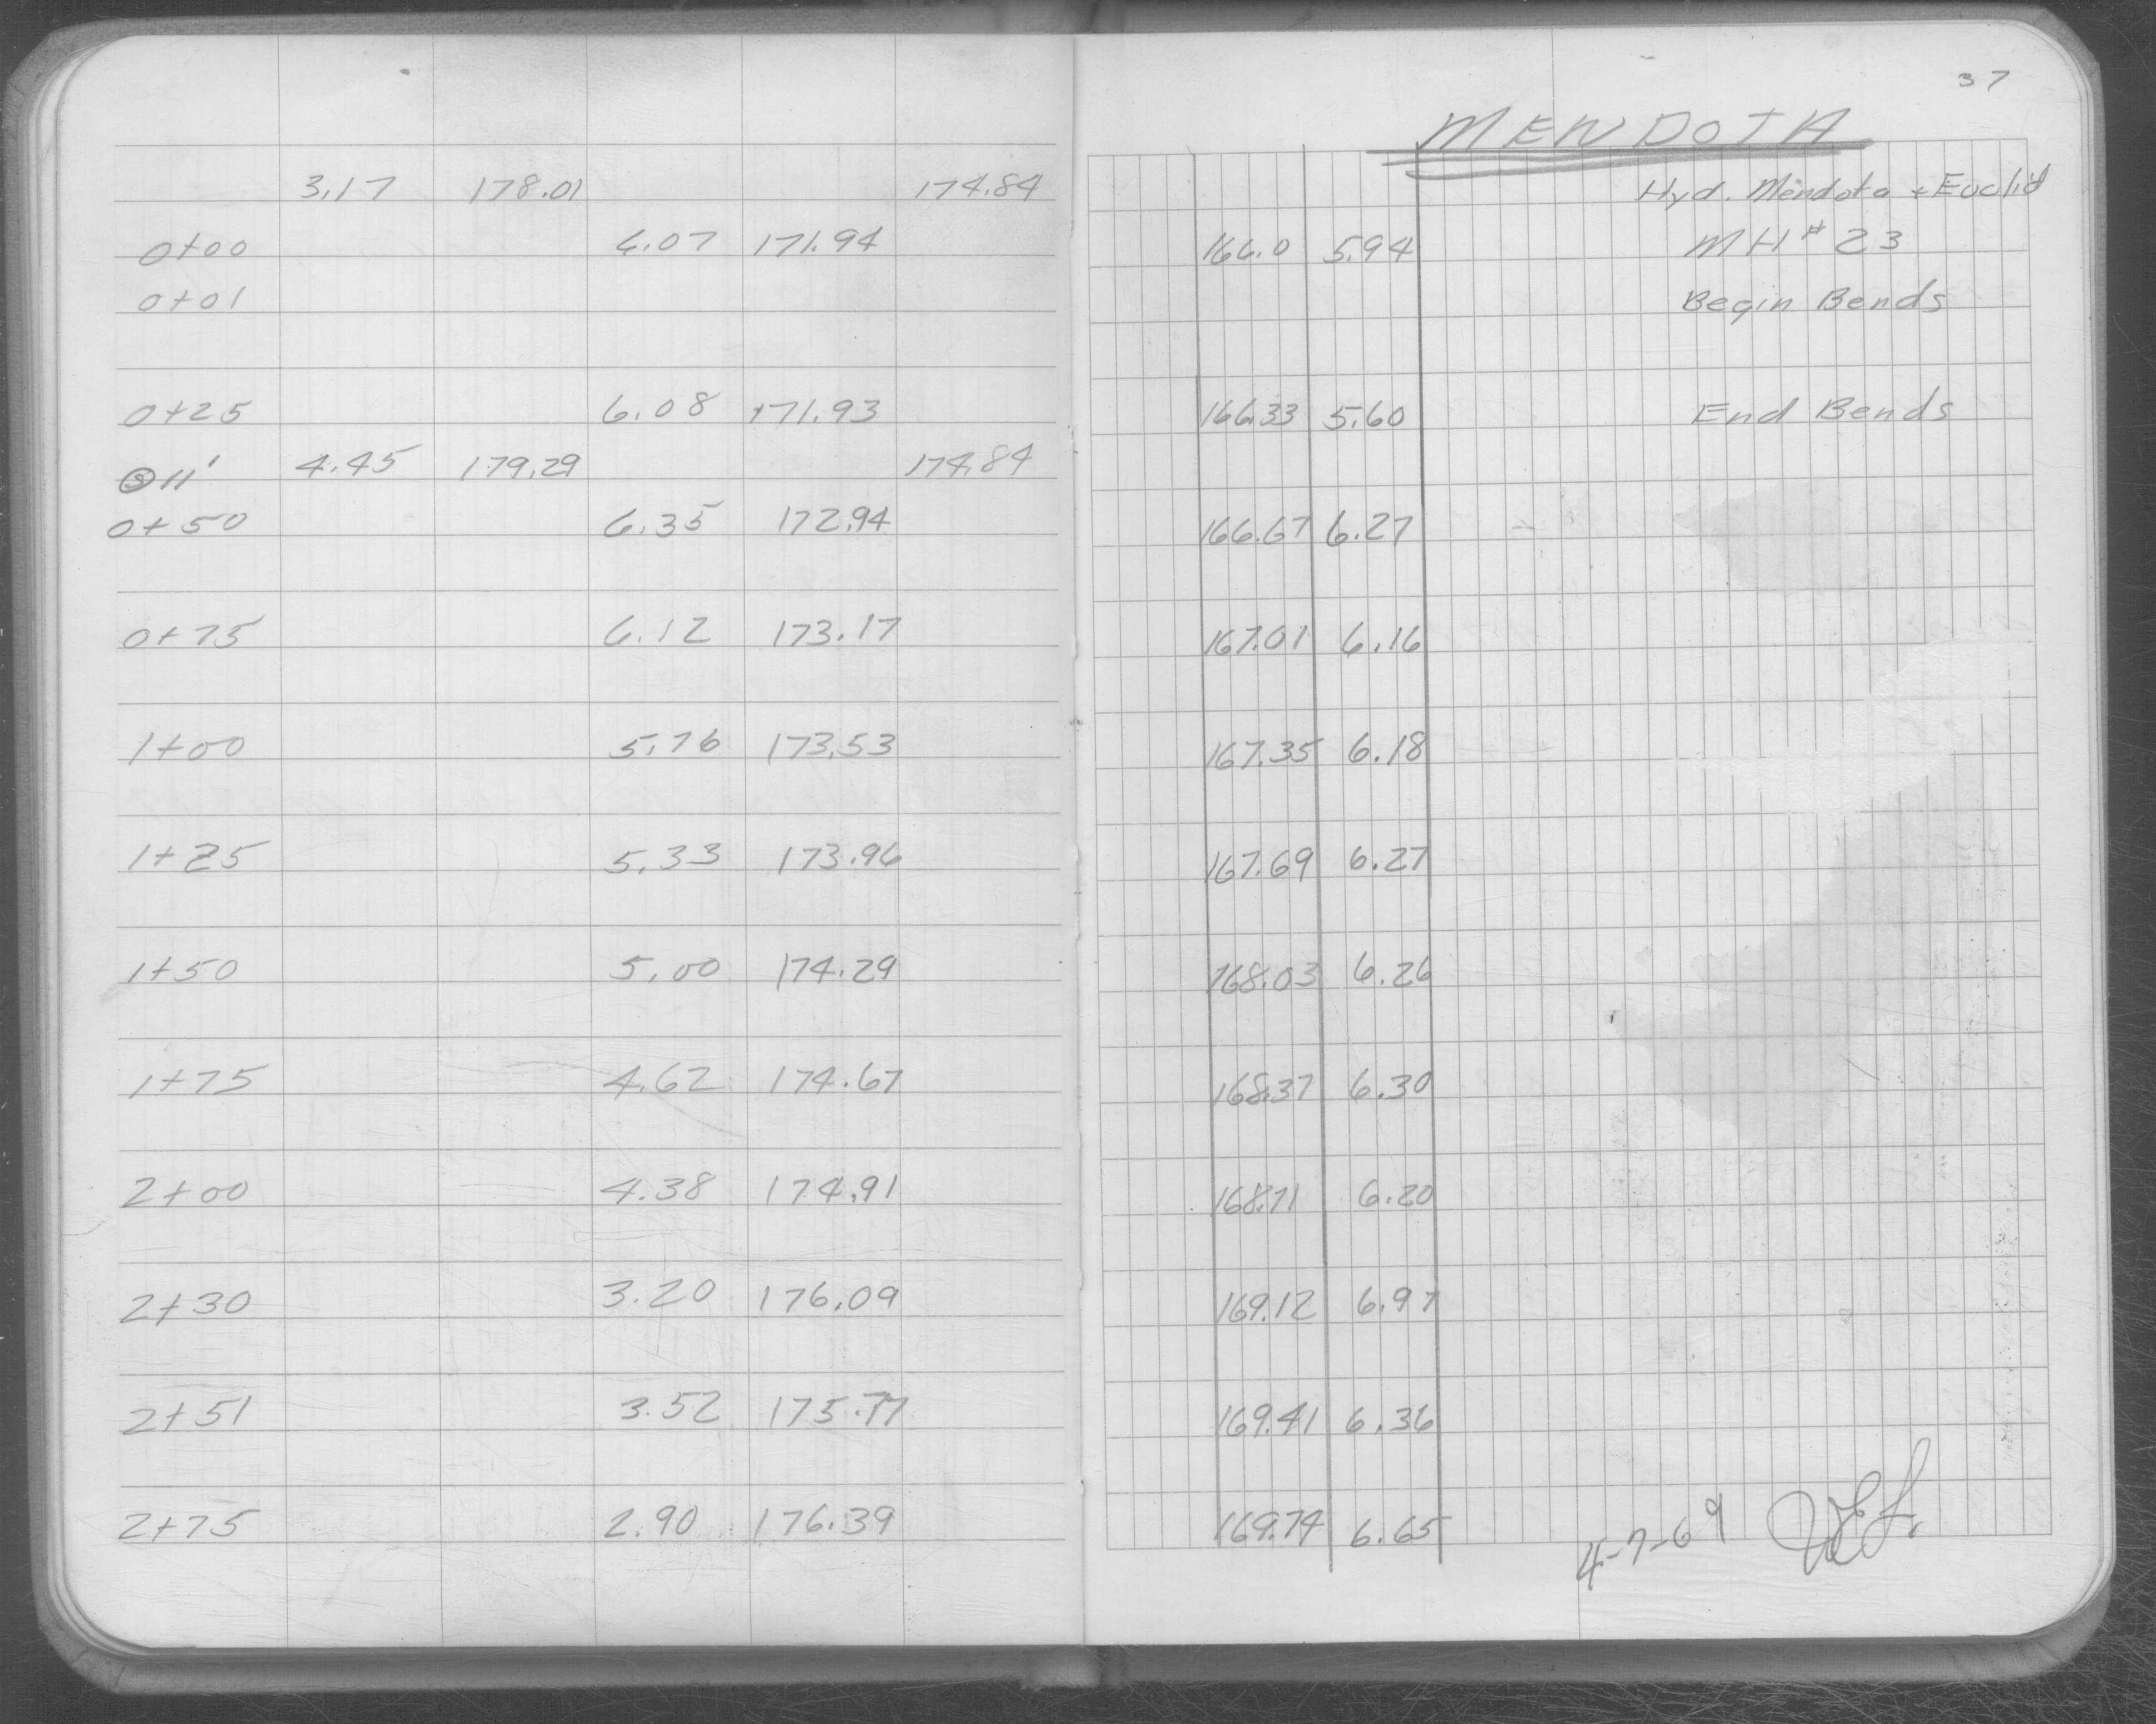 37
MENDOTA
3.17 178.01 174.84 Hyd. Mendota + Euclid
0+00 6.07 171.94 166.0 5.94 MH # 23
0+01 Begin Bends
0+25 6.08 171.93 166.33 5.60 End Bends
11' 4.45 179.29 174.84
0+50 6.35 172.94 166.67 6.27
0+75 6.12 173.17 167.01 6.16
1+00 5.76 173.53 167.35 6.18
1+25 5.33 173.96 167.69 6.27
1+50 5.00 174.29 168.03 6.26
1+75 4.62 174.67 168.37 6.30
2+00 4.38 174.91 168.71 6.20
2+30 3.20 176.09 169.12 6.97
2+51 3.52 175.77 169.41 6.36
2+75 2.90 176.39 169.74 6.65
4-7-69